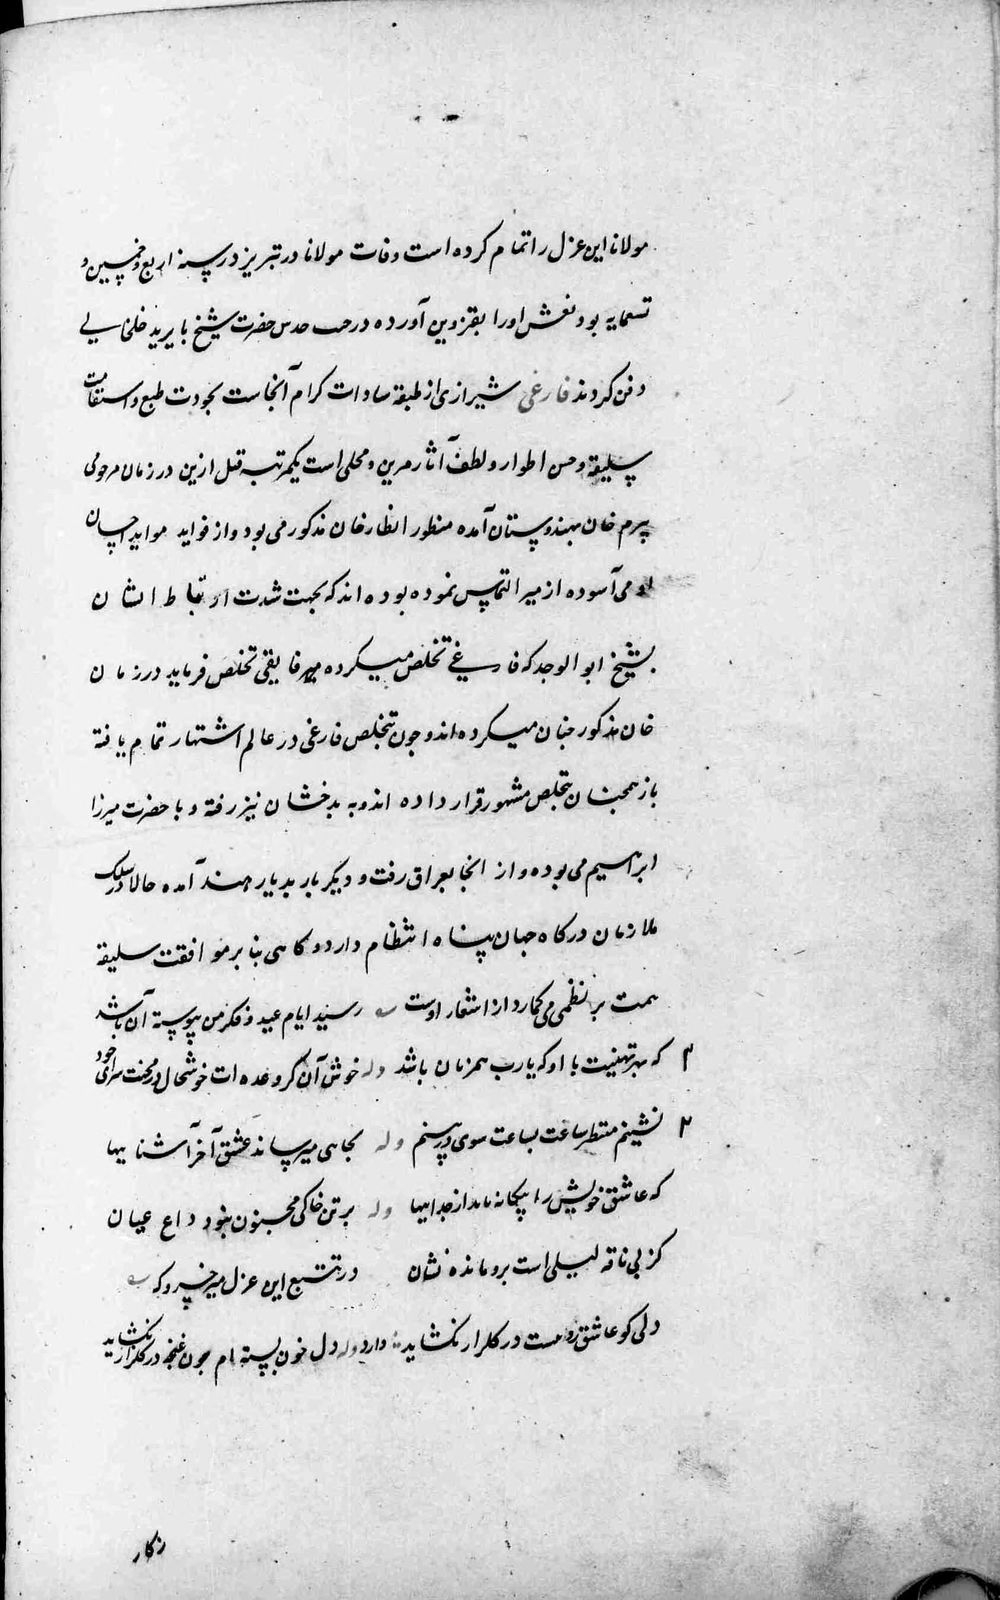 مولانا این غزل را تمام کرده است وفات مولانا در تبریز در سنه اربع و خمسین و
تسعمایه بود نعش او را بقزوین آورده در جنب حضرت شیخ بایزید خلخالی
دفن کردند فارغی شیرازی از طبقه سادات کرام آنجاست بجودت طبع و استقامت
سلیقه و حسن اطوار و لطف آثار مزین و محلی است یکمرتبه قبل ازین در زمان مرحومی
بیرم خان بهندوستان آمده منظور انظار خان مذکور می بود و از فواید مواید احسان
او می آسوده از میر التماس نموده بوده اند که بجهت شدت ارتباط ایشان
بشیخ ابو الوجد که فارغی تخلص میکرده میر فایقی تخلص فرماید در زمان
خان مذکور چنان میکرده اند و چون بتخلص فارغی در عالم اشتهار تمام یافته
باز همچنان بتخلص مشهور قرار داده اند و به بدخشان نیز رفته و با حضرت میرزا
ابراهیم می بوده و از انجا بعراق رفت و دیگر بار بدیار هند آمده حالا در سلک
ملازمان درگاه جهان پناه انتظام دارد و گاهی بنابر موافقت سلیقه
همت بر نظمی می گمارد از اشعار اوست رسید ایام عید و فکر من پیوسته آن باشد
۲ که بهر تهنیت با او که یارب همزمان باشد وله خوش آن کز وعده ات خوشحال در محنت سرای خود
۲ نشینم منتظر ساعت بساعت سوی در بینم وله بجاهی میرساند عشق آخر آشناییها
که عاشق خویش را بیگانه داند از جداییها وله بر تن خاکی مجنون نبود داغ عیان
کز پی ناقه لیلی است برو مانده نشان در تتبع این غزل میر خسرو که
دلی کو عاشق روست در گلزار نگشاید دارد وله دل خون بسته ام چون غنچه در گلزار نگشاید
زکار